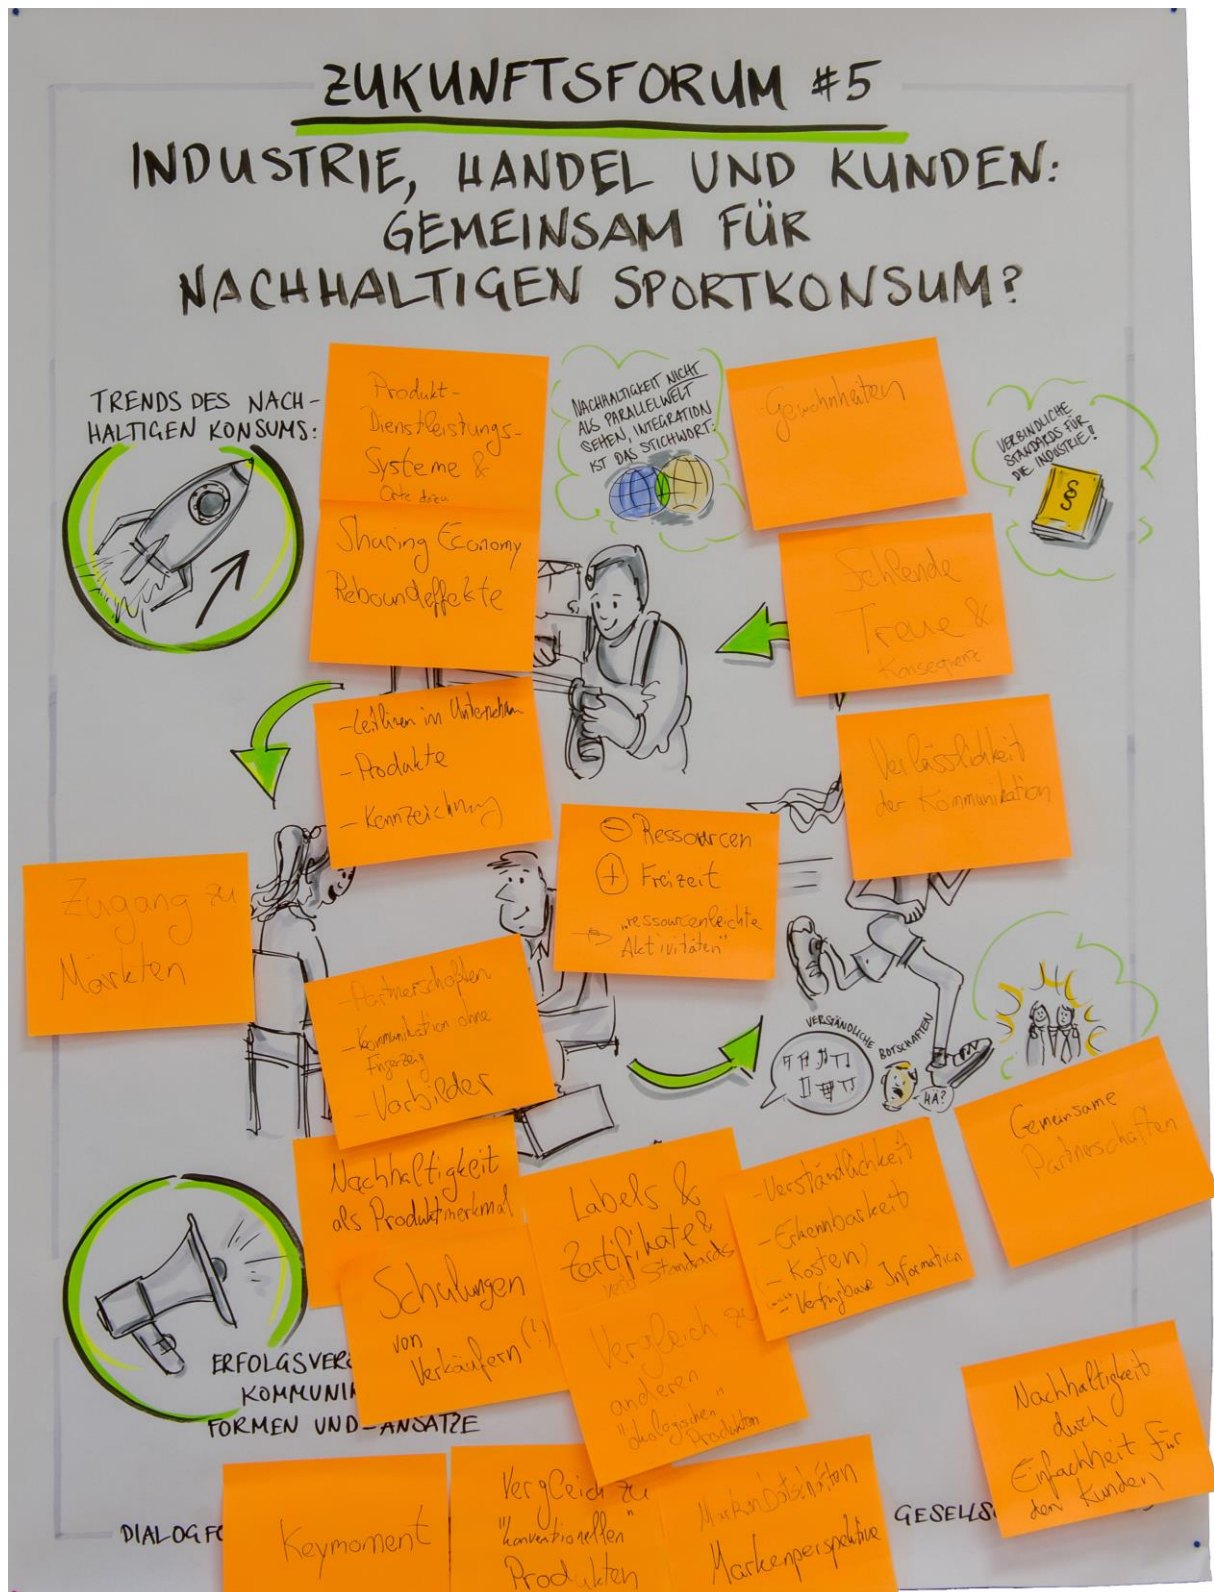 ZUKUNFTSFORUM #5
INDUSTRIE, HANDEL UND KUNDEN:
GEMEINSAM FÜR
NACHHALTIGEN SPORTKONSUM?
TRENDS DES NACH-
HALTIGEN KONSUMS:
Produkt-
Dienstleistungs-
Systeme &
Orte dazu
Sharing Economy
Reboundeffekte
NACHHALTIGKEIT NICHT
ALS PARALLELWELT
SEHEN, INTEGRATION
IST DAS STICHWORT:
Gewohnheiten
VERBINDLICHE
STANDARDS FÜR
DIE INDUSTRIE!
§
Fehlende
Treue &
Konsequenz
- Leitlinien im Unternehmen
- Produkte
- Kennzeichnung
Verlässlichkeit
der Kommunikation
⊖ Ressourcen
⊕ Freizeit
→ "ressourcenleichte
Aktivitäten"
Zugang zu
Märkten
- Partnerschaften
- Kommunikation ohne
Fingerzeig
- Vorbilder
VERSTÄNDLICHE
BOTSCHAFTEN
HÄ?
Gemeinsame
Partnerschaften
Nachhaltigkeit
als Produktmerkmal
Schulungen
von
Verkäufern (!)
Labels &
Zertifikate &
Standards
Vergleich zu
anderen
"ökologischen"
Produkten
- Verständlichkeit
- Erkennbarkeit
(- Kosten)
- Verfügbare Information
ERFOLGSVER
KOMMUNI
FORMEN UND -ANSÄTZE
Nachhaltigkeit
durch
Einfachheit für
den Kunden
DIALOGFO
Keymoment
Vergleich zu
"konventionellen"
Produkten
Markenbotschaften
Markenperspektive
GESELLS